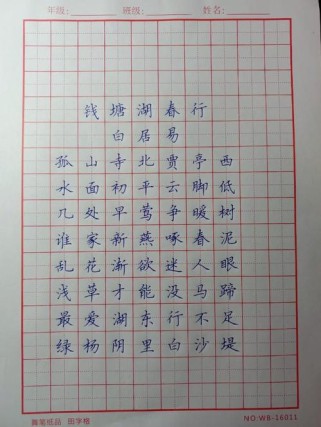 年级: 班级: 姓名:
钱塘湖春行
白居易
孤山寺北贾亭西
水面初平云脚低
几处早莺争暖树
谁家新燕啄春泥
乱花渐欲迷人眼
浅草才能没马蹄
最爱湖东行不足
绿杨阴里白沙堤
田字格 NO:WB-16011